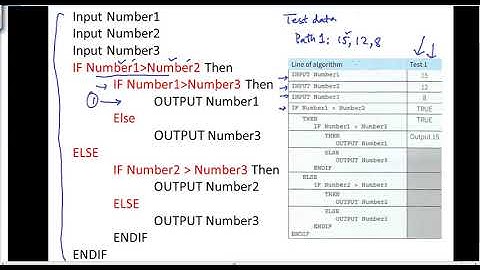 Input Number1
Input Number2
Input Number3
IF Number1>Number2 Then
IF Number1>Number3 Then
① OUTPUT Number1
Else
OUTPUT Number3
ELSE
IF Number2 > Number3 Then
OUTPUT Number2
ELSE
OUTPUT Number3
ENDIF
ENDIF
Test data
Path 1: 15, 12, 8
Line of algorithm Test 1
INPUT Number1 15
INPUT Number2 12
INPUT Number3 8
IF Number1 > Number2 TRUE
THEN TRUE
IF Number1 > Number3
THEN Output 15
OUTPUT Number1
ELSE
OUTPUT Number3
ENDIF
ELSE
IF Number2 > Number3
THEN
OUTPUT Number2
ELSE
OUTPUT Number3
ENDIF
ENDIF